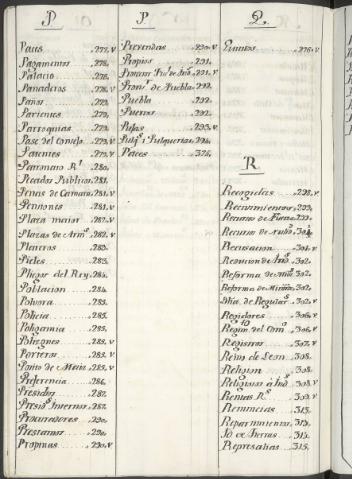 P
Paus ..277.v
Pagamentos ..278.
Palacio ..278.
Panaderos ..278.v
Paños ..279.
Parientes ..279.
Parroquias ..279.
Pase del Consejo ..279.v
Patentes ..279.v
Patronato Rl. ..280.
Pecados Publicos ..281.
Penas de Camara ..281.v
Pensiones ..281.v
Plaza maior ..282.v
Plazas de Arms. ..282.v
Plateros ..283.
Pieles ..283.
Pliegos del Rey ..284.
Poblacion ..284.
Polvora ..285.
Policia ..285.
Poligamia ..285.
Potreros ..285.v
Porteros ..285.v
Preferencia ..286.
Presidios ..287.
Presids. Internos ..287.
Procuradores ..290.
Prestamos ..290.
Propinas ..290.v
P
Prevendas ..290.v
Propios ..291.
..291.v
de Puebla ..292.
Puebla ..292.
Puertos ..292.
Pujas ..293.v
i Pulquerias ..294.
Pezes ..325.
Q
Quintos ..276.v
R
Recogidas ..298.v
Recivimientos ..299.
Recurso de Fuerza ..299.
Recurso de
Recusacion ..301.v
..302.
Reforma de ..302.
Reforma de ..302.
de Regulars. ..302.v
Regidores ..306.v
Regimto. del Coms. ..306.v
Registros ..307.v
Reino de Leon ..308.
Religion ..308.
Religiosos ..308.v
Rentas Rs. ..309.v
Renuncias ..313.
Repartimientos ..313.
Id. de Tierras ..315.
Represalias ..315.